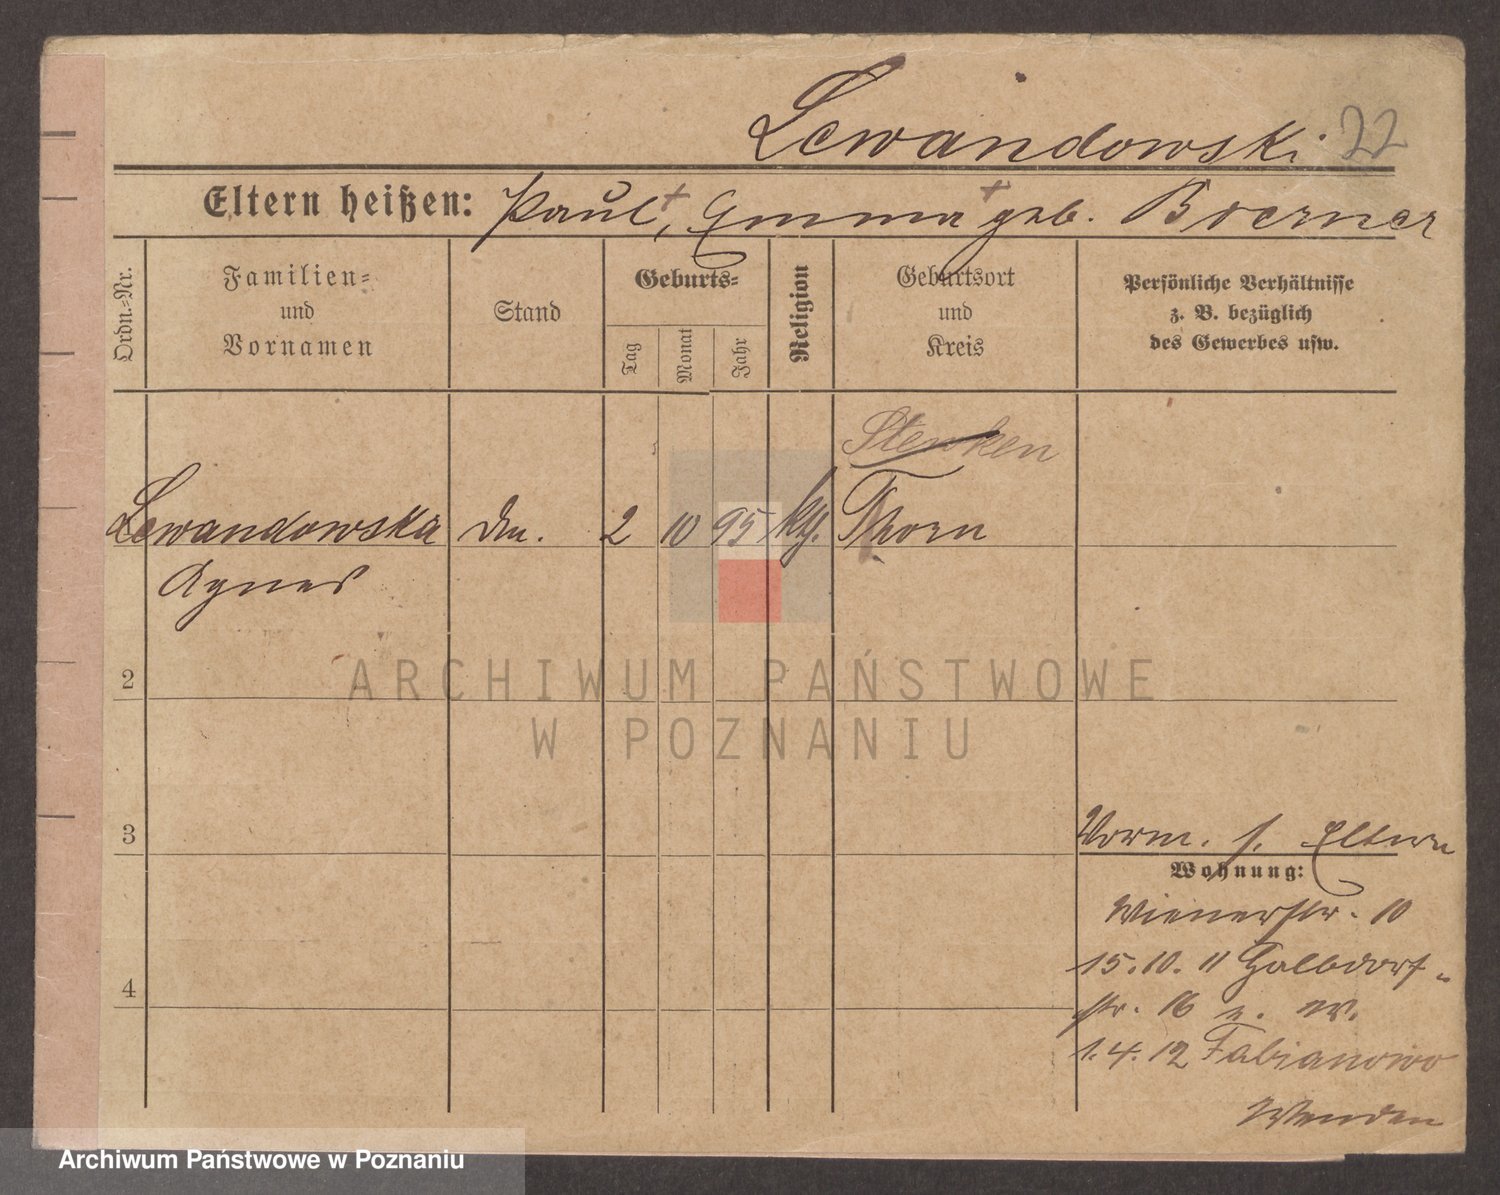 Lewandowski 22
Eltern heißen: Paul +, Emma + geb. Boerner
Ordn.-Nr.
Familien-
und
Vornamen
Stand
Geburts-
Tag
Monat
Jahr
Religion
Geburtsort
und
Kreis
Persönliche Verhältnisse
z. B. bezüglich
des Gewerbes usw.
Stenken
Lewandowska 2 10 95 Thorn
Agnes
2
3
4
Vorm. s. Eltern
Wohnung:
Wienerstr. 10
15.10. 11
str. 16
1.4.12 Fabianowo
Wenden
ARCHIWUM PAŃSTWOWE
W POZNANIU
Archiwum Państwowe w Poznaniu